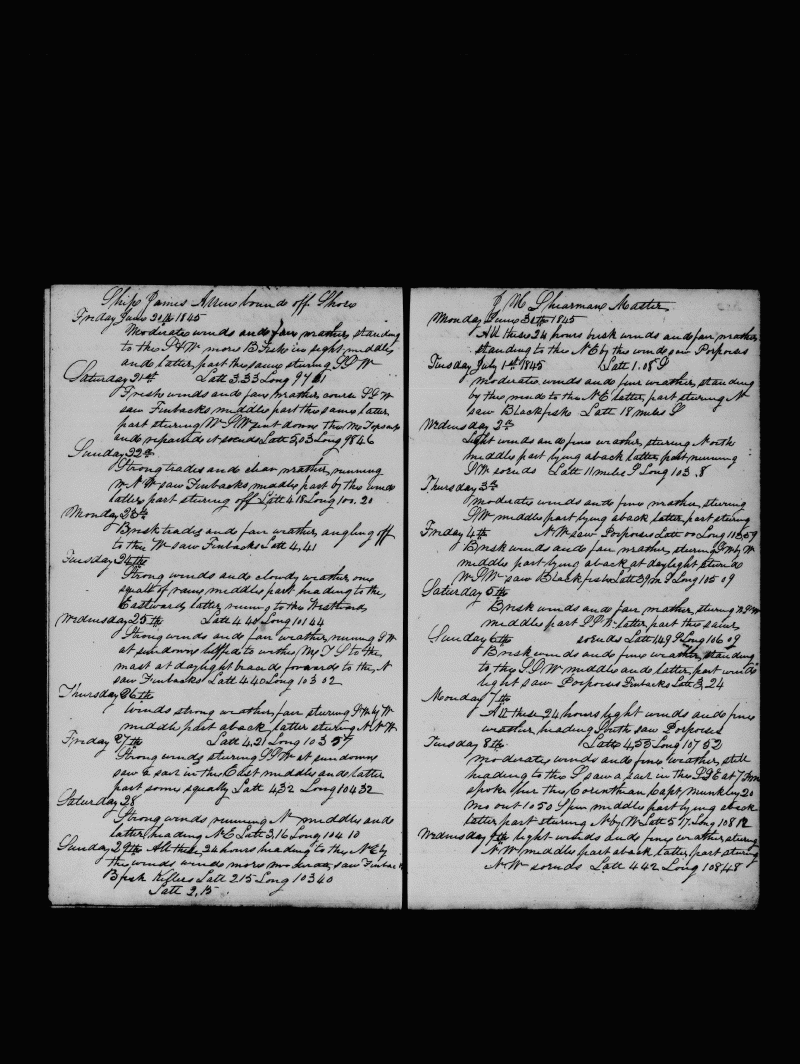 Ship James Allen bound off Shore
Friday June 20th 1845
Moderate winds and fair weather, standing
to the S & W more B Fish in sight, middle
and latter part the same sturing S S W
Saturday 21st Latt 3.33 Long 97
Fresh winds and fair weather course S S W
saw Finbacks, middle part the same, latter
part sturing W S W sent down the M Topsail
and repaired it sounds Latt 5,03 Long 98 46
Sunday 22th
Strong trades and clear weather, running
W N W saw Finbacks, middle part by the wind
latter part sturing off Latt 4 18 Long 100.20
Monday 23th
Brisk trades and fair weather angling off
to the W saw Finbacks Latt 4,41
Tuesday 24th
Strong winds and cloudy weather one
squall of rain, middle part heading to the
Eastward, latter runing to the Westward
Wednesday 25th Latt 4 40 Long 101 44
Strong winds and fair weather running S W
at sundown luffed to with M T S to the
mast at daylight braced forward to the N
saw Finbacks Latt 4.40 Long 103 02
Thursday 26th
Winds strong weather fair sturing S W by W
middle part aback latter sturing N N W
Friday 27th Latt 4,21 Long 103 57
Strong winds sturing S S W at sundown
saw a sail in the East middle and latter
part some squally Latt 4.32 Long 104 32
Saturday 28
Strong winds running N middle and
latter heading N E Latt 3,16 Long 104 10
Sunday 29th All these 24 hours heading to the N E by
the wind winds more moderate, saw Finbacks
B fish Killers Latt 2 15 Long 103 40
Latt 2,15
J M Shearman Master
Monday June 30th 1845
All these 24 hours brisk winds and fair weather
standing to the N E by the wind saw Porpoises
Tuesday July 1st 1845 Latt 1.08 S
moderate winds and fair weather, standing
by the wind to the N E latter part sturing N
saw Blackfish Latt 18 miles S
Wednesday 2th
Light winds and fine weather, sturing North
middle part lying aback latter part running
S W sounds Latt 11 miles S Long 103.8
Thursday 3th
moderate winds and fine weather, sturing
S W middle part lying aback latter part sturing
Friday 4th N W saw Porpoises Latt 00 Long 103,59
Brisk winds and fair weather sturing S W by W
middle part lying aback at daylight sturing
W S W saw Blackfish Latt 39 m S Long 105 09
Saturday 5th
Brisk winds and fair weather, sturing W S W
middle part S S W latter part the same
Sunday 6th sounds Latt 1 49 S Long 106 09
Brisk winds and fine weather, standing
to the S S W middle and latter part winds
light saw Porpoises Finbacks Latt 3,24
Monday 7th
All these 24 hours light winds and fine
weather heading South saw Porpoises
Tuesday 8th Latt 4,53 Long 107 52
moderate winds and fine weather, still
heading to the S saw a sail in the S S E at 7
spoke the Corinthian Capt Munkley 20
mo out 1050 Sperm middle part lying aback
latter part sturing N by W Latt 5 17 Long 108 12
Wednesday 9th light winds and fine weather sturing
N W middle part aback latter part sturing
N W sounds Latt 4 42 Long 108 48